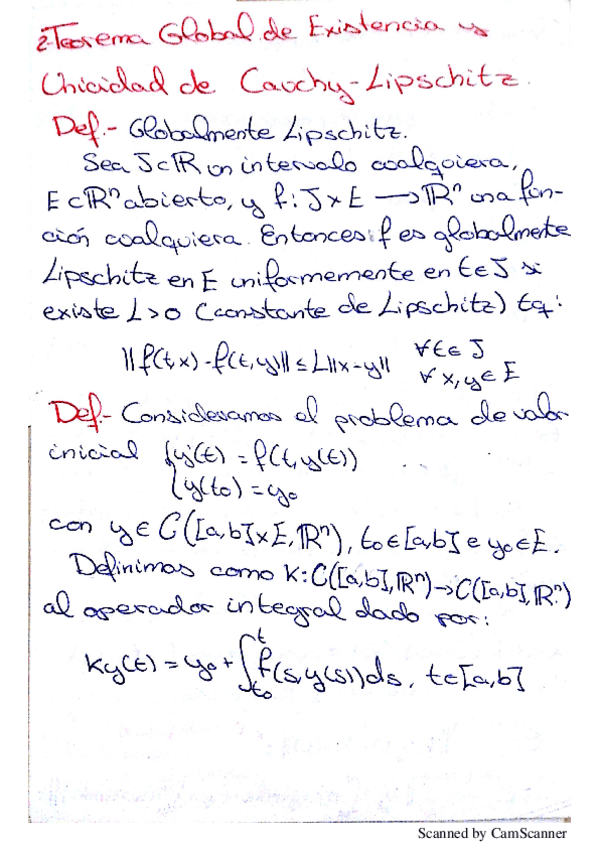 2-Teorema Global de Existencia y
Unicidad de Cauchy-Lipschitz.
Def.- Globalmente Lipschitz.
Sea J⊂ℝ un intervalo cualquiera,
E⊂ℝⁿ abierto, y f: J×E ⟶ ℝⁿ una fun-
ción cualquiera. Entonces: f es globalmente
Lipschitz en E uniformemente en t∈J si
existe L>0 (constante de Lipschitz) tq:
||f(t,x)-f(t,y)|| ≤ L||x-y|| ∀t∈J
∀x,y∈E
Def.- Consideramos el problema de valor
inicial {y'(t) = f(t,y(t))
{y(t₀) = y₀
con y∈C([a,b]×E,ℝⁿ), t₀∈[a,b] e y₀∈E.
Definimos como K: C([a,b],ℝⁿ)→C([a,b],ℝⁿ)
al operador integral dado por:
Ky(t) = y₀ + ∫ₜ₀ᵗ f(s,y(s))ds, t∈[a,b]
Scanned by CamScanner